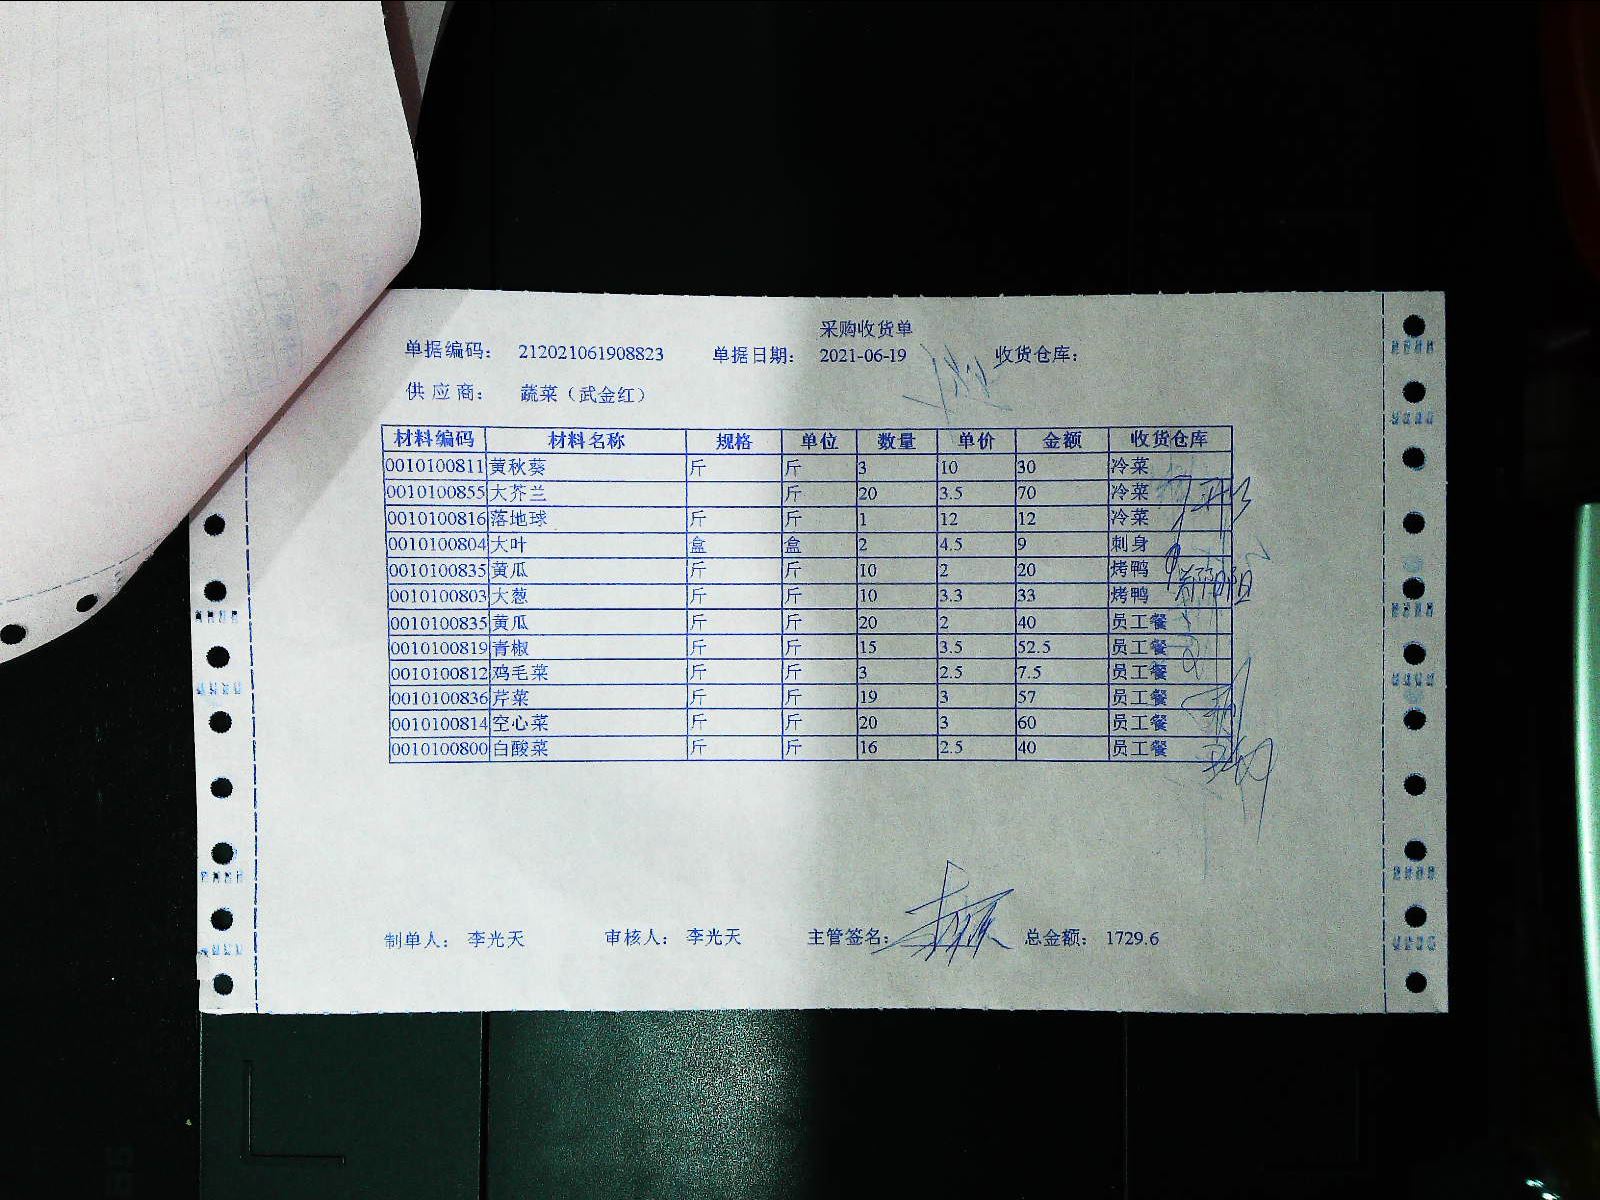 采购收货单
单据编码： 212021061908823 单据日期： 2021-06-19 收货仓库：
供应商： 蔬菜（武金红）
材料编码 材料名称 规格 单位 数量 单价 金额 收货仓库
0010100811 黄秋葵 斤 斤 3 10 30 冷菜
0010100855 大芥兰 斤 20 3.5 70 冷菜
0010100816 落地球 斤 斤 1 12 12 冷菜
0010100804 大叶 盒 盒 2 4.5 9 刺身
0010100835 黄瓜 斤 斤 10 2 20 烤鸭
0010100803 大葱 斤 斤 10 3.3 33 烤鸭
0010100835 黄瓜 斤 斤 20 2 40 员工餐
0010100819 青椒 斤 斤 15 3.5 52.5 员工餐
0010100812 鸡毛菜 斤 斤 3 2.5 7.5 员工餐
0010100836 芹菜 斤 斤 19 3 57 员工餐
0010100814 空心菜 斤 斤 20 3 60 员工餐
0010100800 白酸菜 斤 斤 16 2.5 40 员工餐
制单人： 李光天 审核人： 李光天 主管签名： 总金额： 1729.6